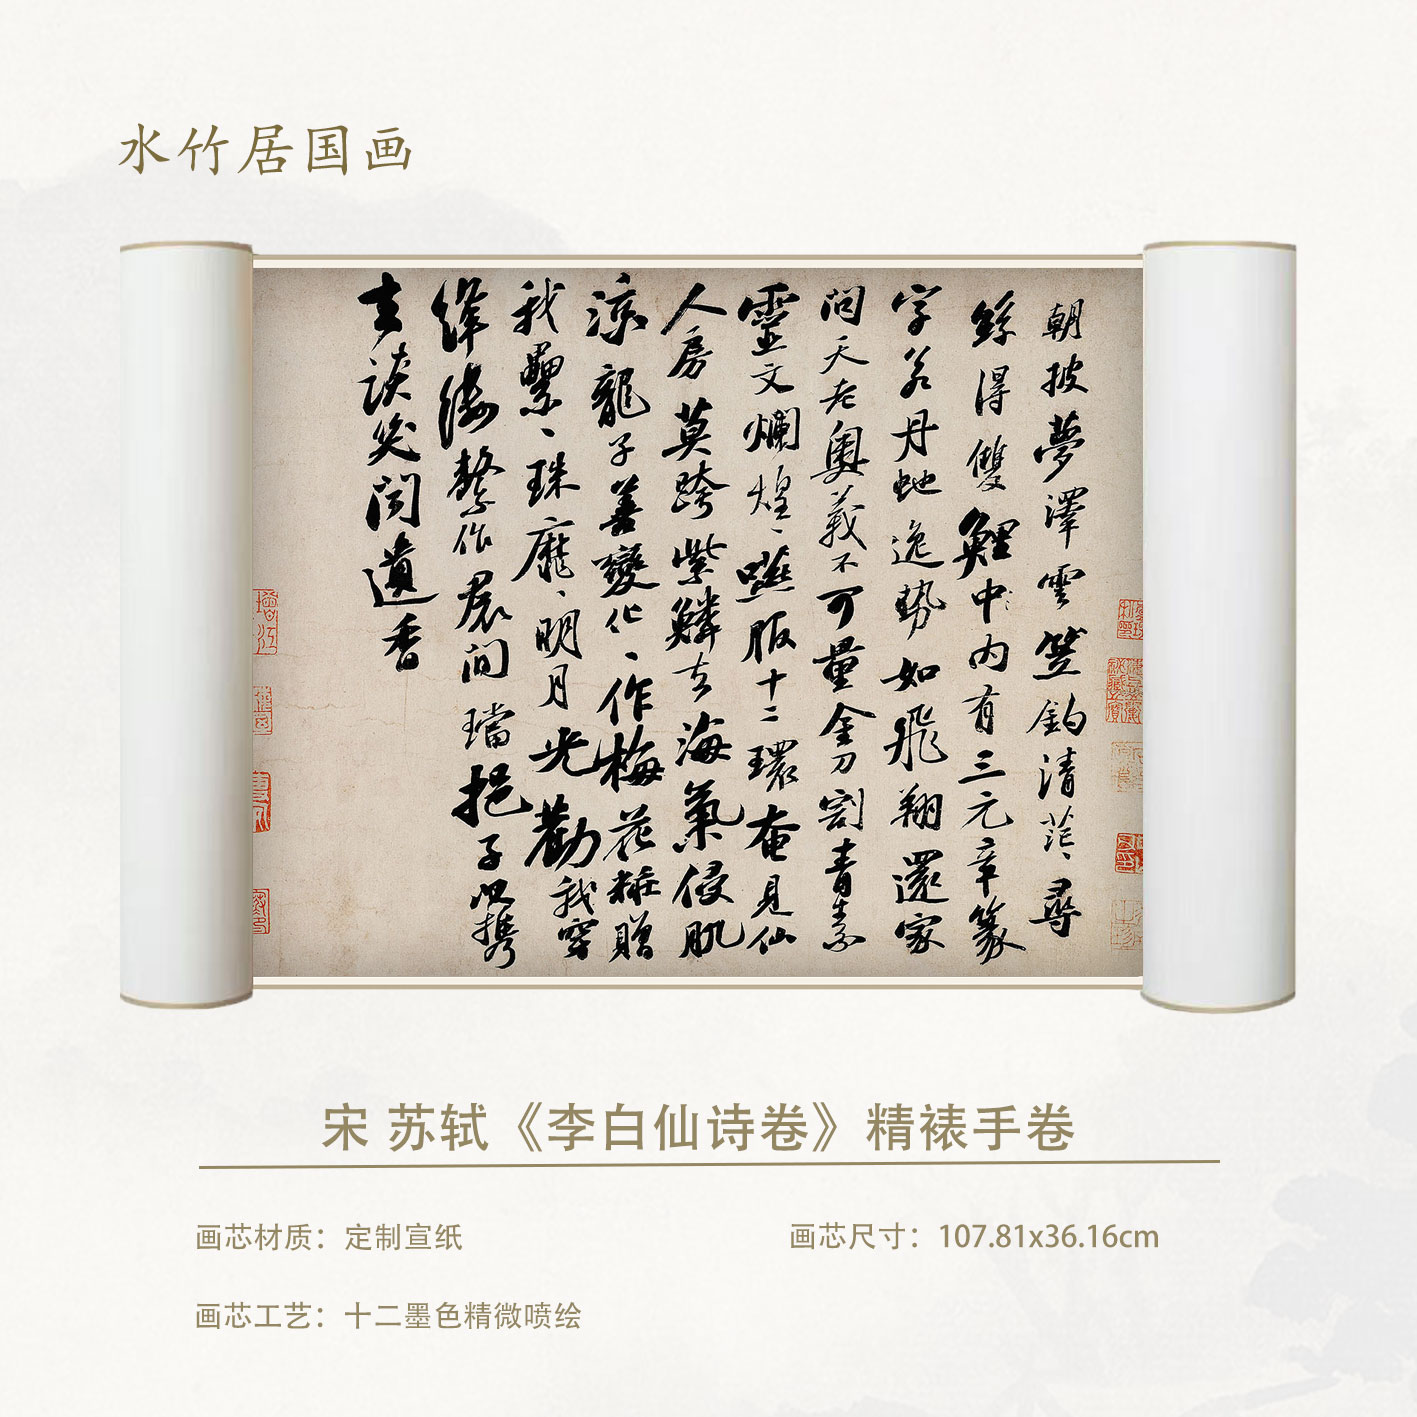 水竹居国画
朝披夢澤雲笠釣清茫〻尋
絲得雙鯉中〻內有三元章篆
字若丹虵逸勢如飛翔還家
問天老奧義不可量金刀割青素
靈文爛煌〻嚥服十二環奄見仙
人房莫跨紫鱗去海氣侵肌
涼龍子善變化〻作梅花粧贈
我纍〻珠靡〻明月光勸我穿
絳縷繫作裙間璫挹子以攜
去談笑聞遺香
宋 苏轼《李白仙诗卷》精裱手卷
画芯材质：定制宣纸
画芯尺寸：107.81x36.16cm
画芯工艺：十二墨色精微喷绘